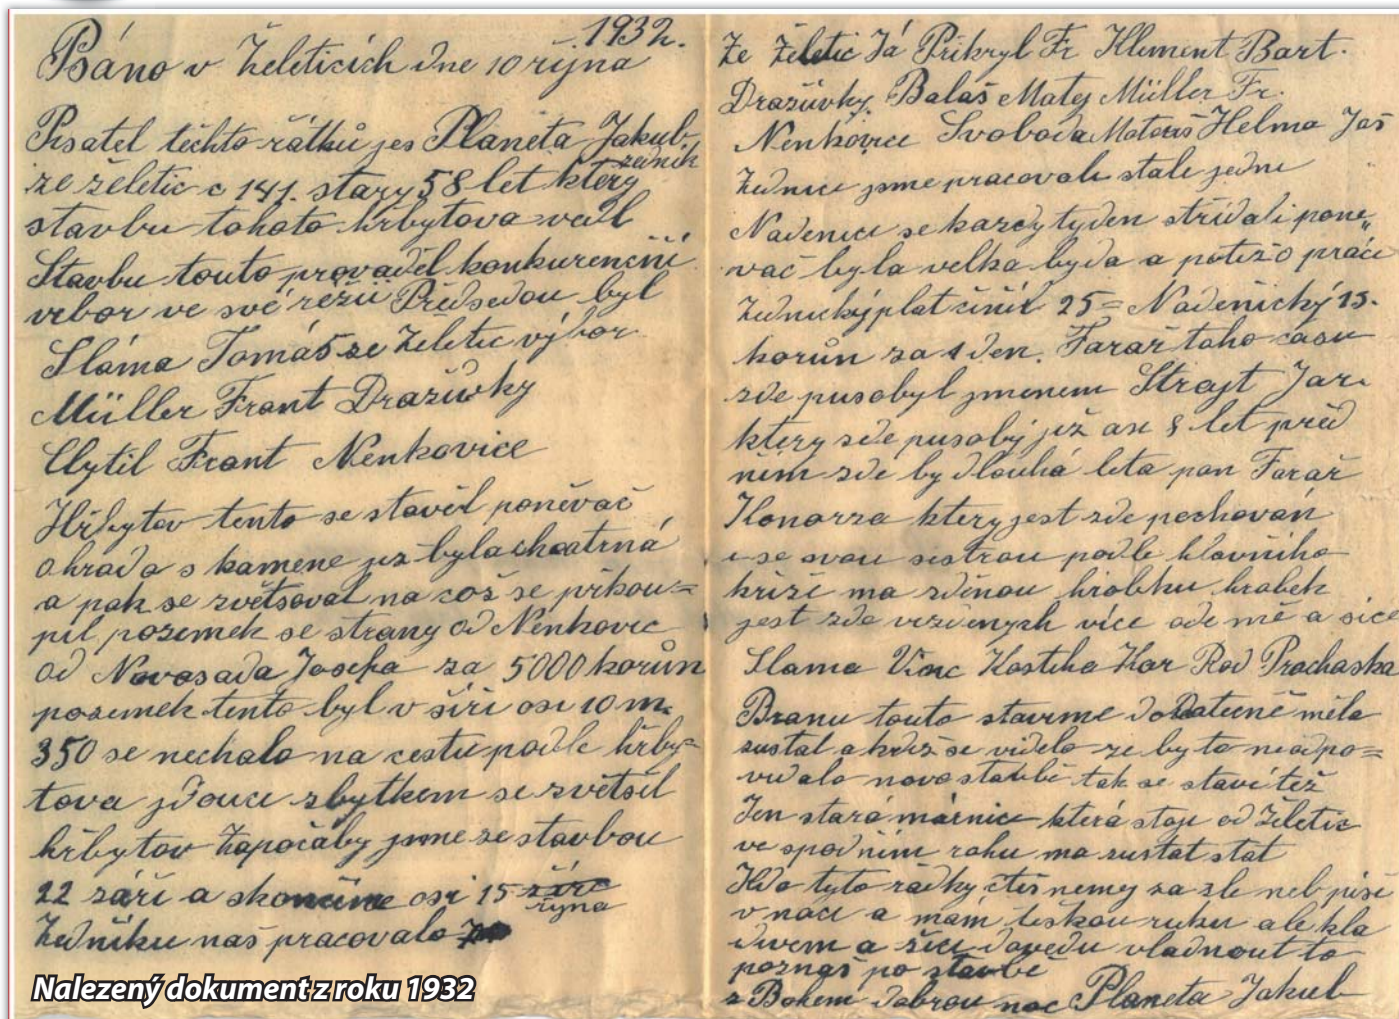 1932.
Psáno v Želeticích dne 10 října
Pisatel těchto řátků jes Planeta Jakub.
zedník
ze želetic c 141. stary 58 let ktery
stavbu tohoto hrbytova vedl
Stavbu touto provaděl konkurenční
vebor ve své režii Předsedou byl
Sláma Tomáš ze Želetic výbor
Müller Frant Dražůvky
Chytil Frant Nenkovice
Hřbytov tento se stavěl poněvač
ohrada s kamene uz byla chatrná
a pak se zvětsoval na což se přikou=
pil pozemek se strany od Nenkovic
od Novosada Josefa za 5000 korůn
pozemek tento byl v šíři osi 10 m.
350 se nechalo na cestu podle hřby=
tova jdouci zbytkem se zvětšil
hřbytov Započaby jsme se stavbou
22 září a skončíme osi 15 září
října
Zedníku naš pracovalo
Ze Želetic Já Přikryl Fr Klement Bart.
Dražůvky Balaš Matej Müller Fr.
Nenkovice Svoboda Matouš Helma Jaš
Zednici jsme pracovali stale jedni
Nadenici se kazdy tyden střidali pone„
vač byla velka byda a potiž o práci
Zednický plat činil 25= Nadenický 15.
korůn za 1 den. Farař toho času
zde pusobyl jmenem Strajt Jar.
ktery zde pusobý již asi 8 let před
ním zde by dlouhá leta pan Farař
Konarza ktery jest zde pochován
i se svou sestrou podle hlavního
kříže ma zděnou hrobku hrobek
jest zde vizděnych více ode mě a sice
Slama Vinc Kostiha Kar Rod Prochaska
Branu touto stavime dodatečně měla
zustat a když se vidělo ze by to neodpo=
vidalo novostavbě tak se staví též
Jen stará márnice která stoji od Želetic
ve spodním rohu ma zustat stat
Kdo tyto řádky čteš nemej za zle neb piši
v noci a mám teškou ruku ale kla
divem a žici dovedu vladnout to
poznaš po stavbě
z Bohem Dobrou noc Planeta Jakub
Nalezený dokument z roku 1932